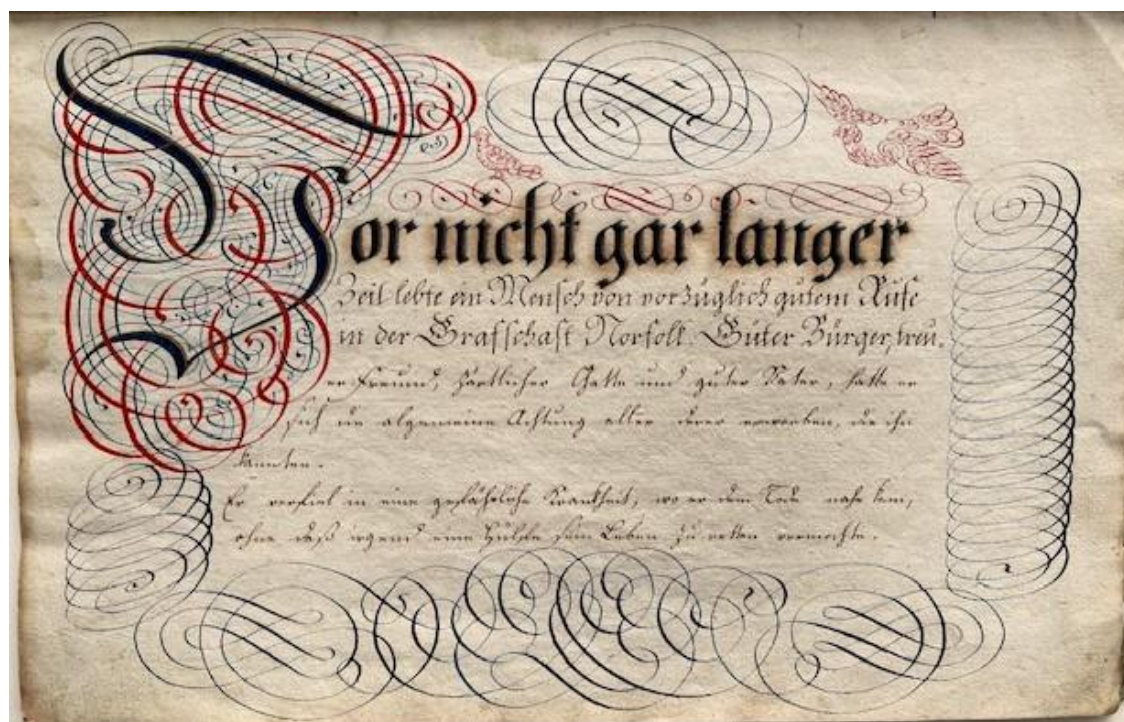 Vor nicht gar langer
Zeit lebte ein Mensch von vorzüglich gutem Rufe
in der Grafschaft Norfolk. Guter Bürger, treu-
er Freund, zärtlicher Gatte und guter Vater, hatte er
sich die algemeine Achtung aller derer erworben, die ihn
kannten.
Er verfiel in eine gefährliche Krankheit, wo er dem Tode nahe kam,
ohne daß irgend eine Hülfe sein Leben zu retten vermochte.